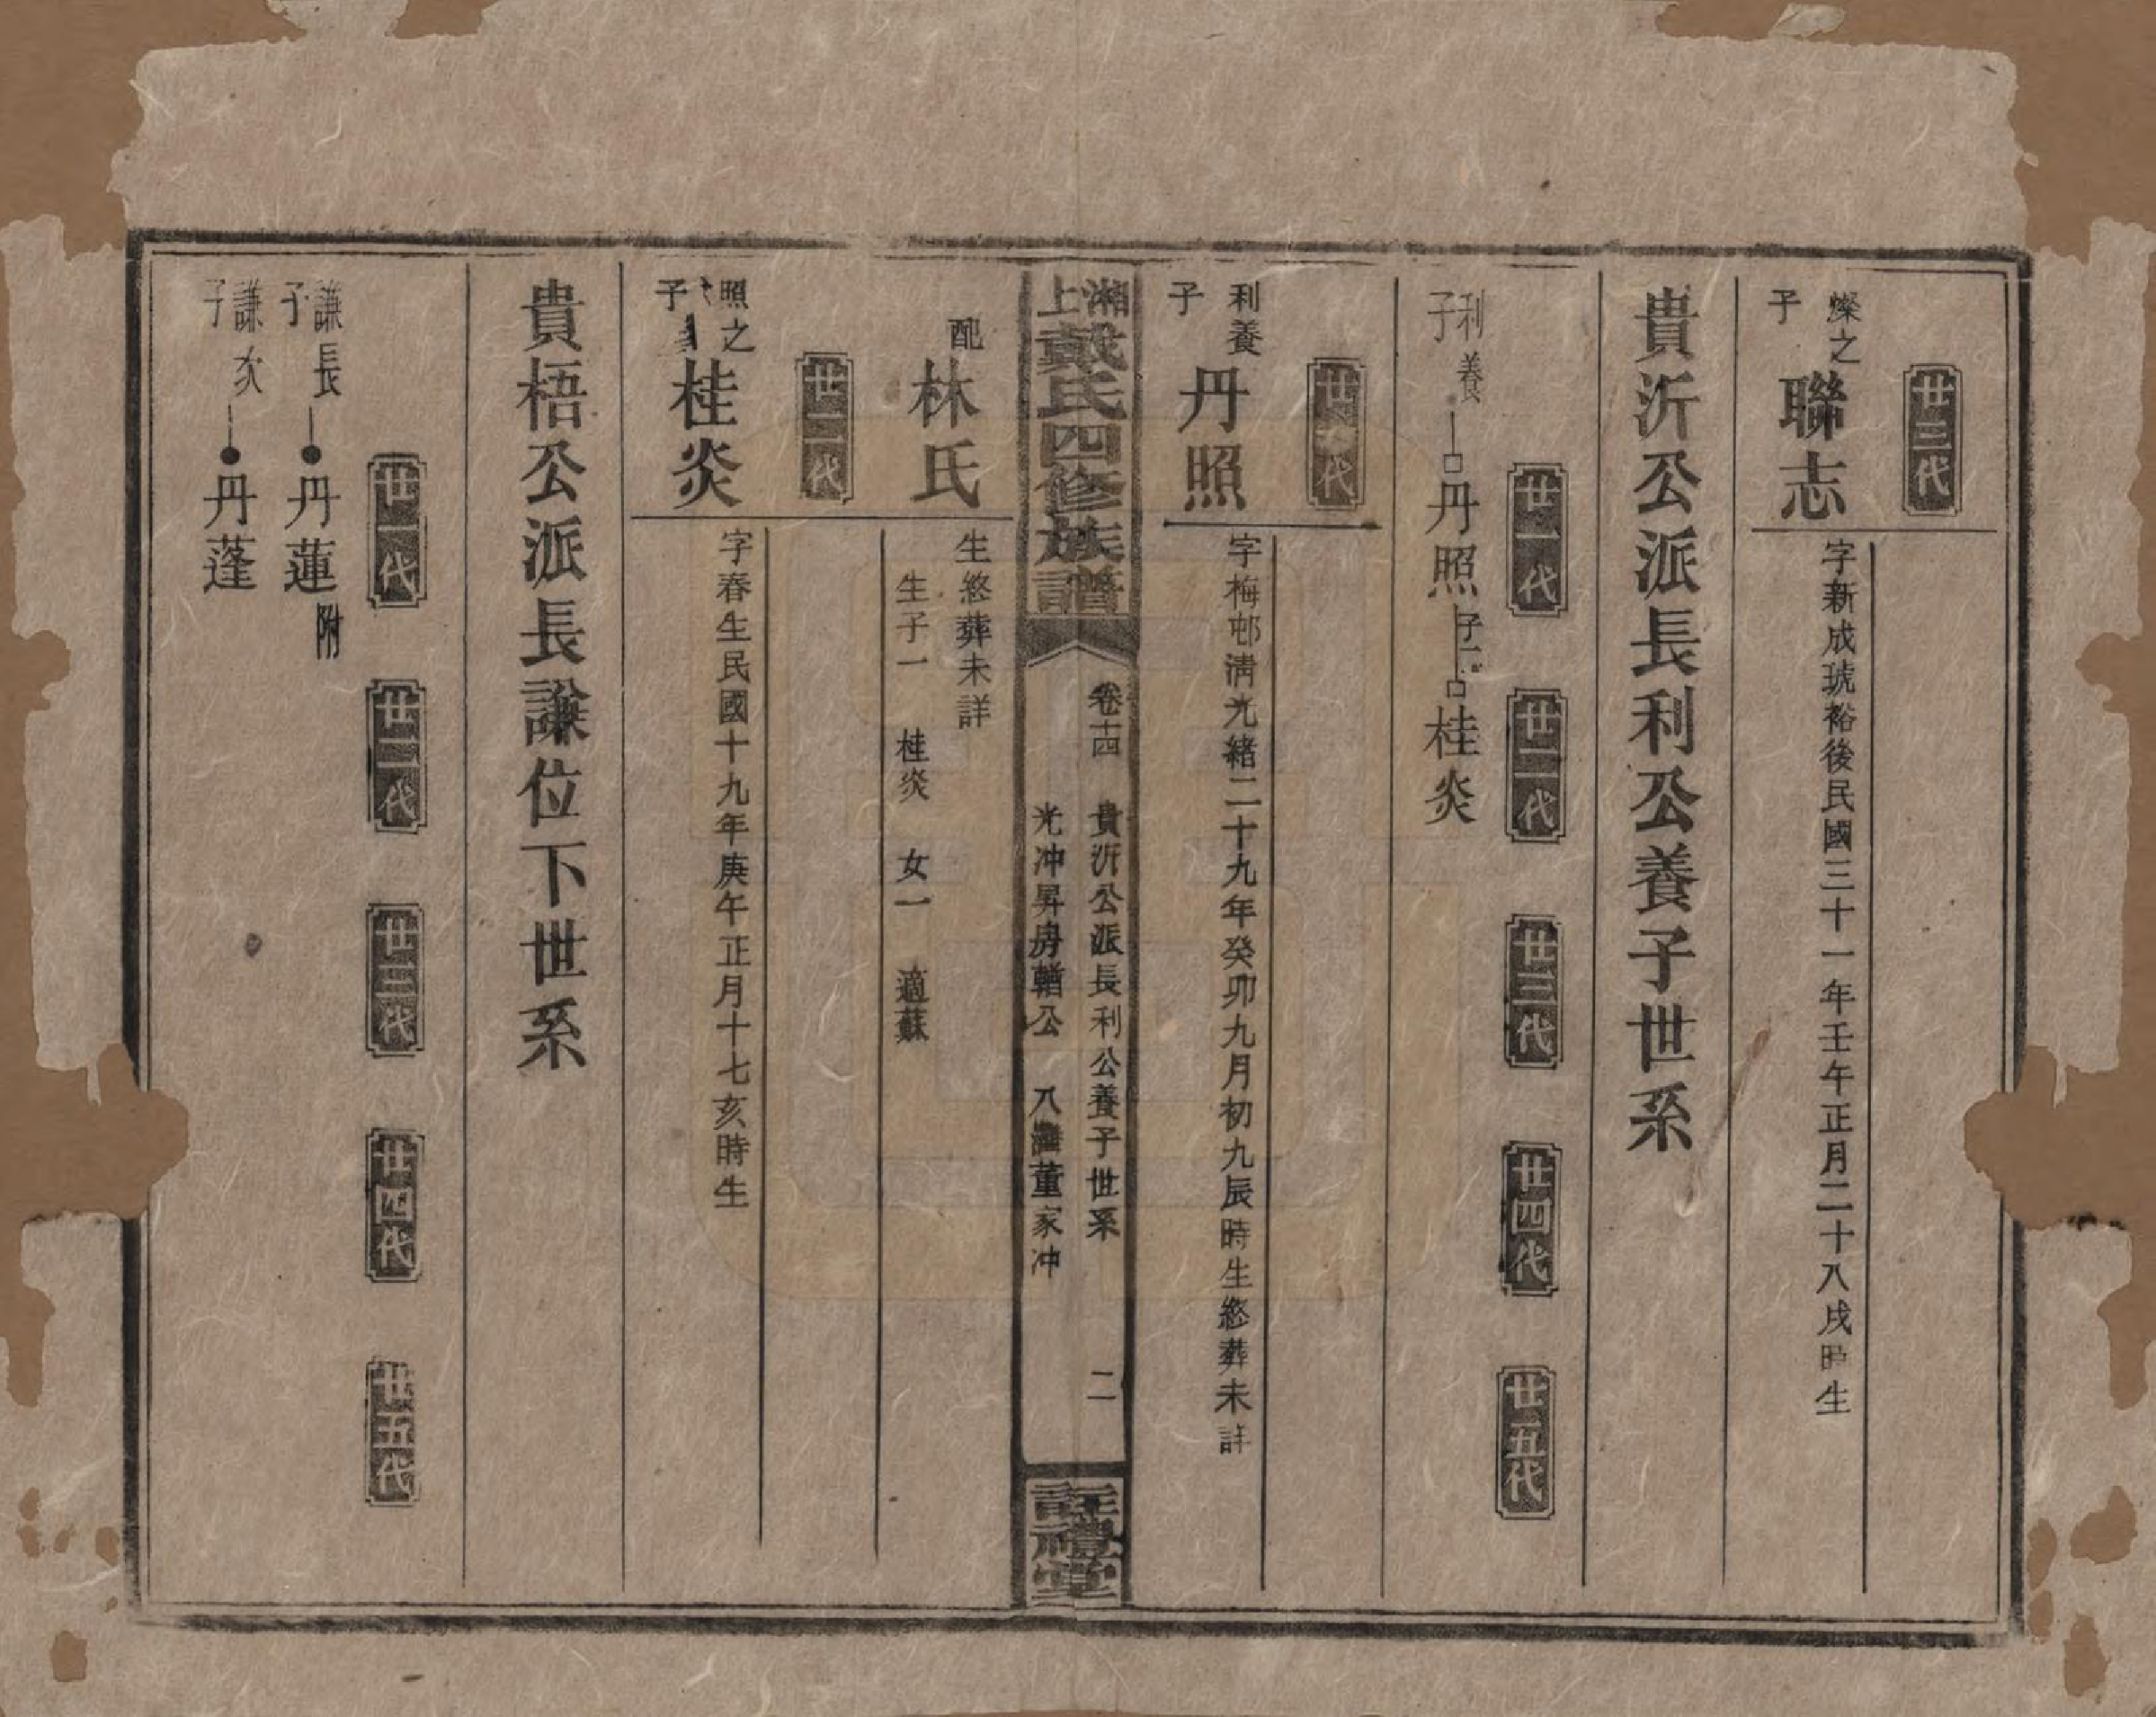 廿三代
燦之子 聯志
字新成琥裕後民國三十一年壬午正月二十八戌時生
貴沂公派長利公養子世系
廿一代 廿二代 廿三代 廿四代 廿五代
利養子 丹照 子一 桂炎
廿一代
利養子 丹照
字梅邨淸光緒二十九年癸卯九月初九辰時生終葬未詳
湘上戴氏四修族譜
卷十四 貴沂公派長利公養子世系 二
光冲昇房輶公 八 董家冲
註禮堂
配 林氏
生終葬未詳
生子一 桂炎 女一 適蘇
廿二代
照之子 桂炎
字春生民國十九年庚午正月十七亥時生
貴梧公派長謙位下世系
廿一代 廿二代 廿三代 廿四代 廿五代
謙長子 丹蓮 附
謙次子 丹蓬